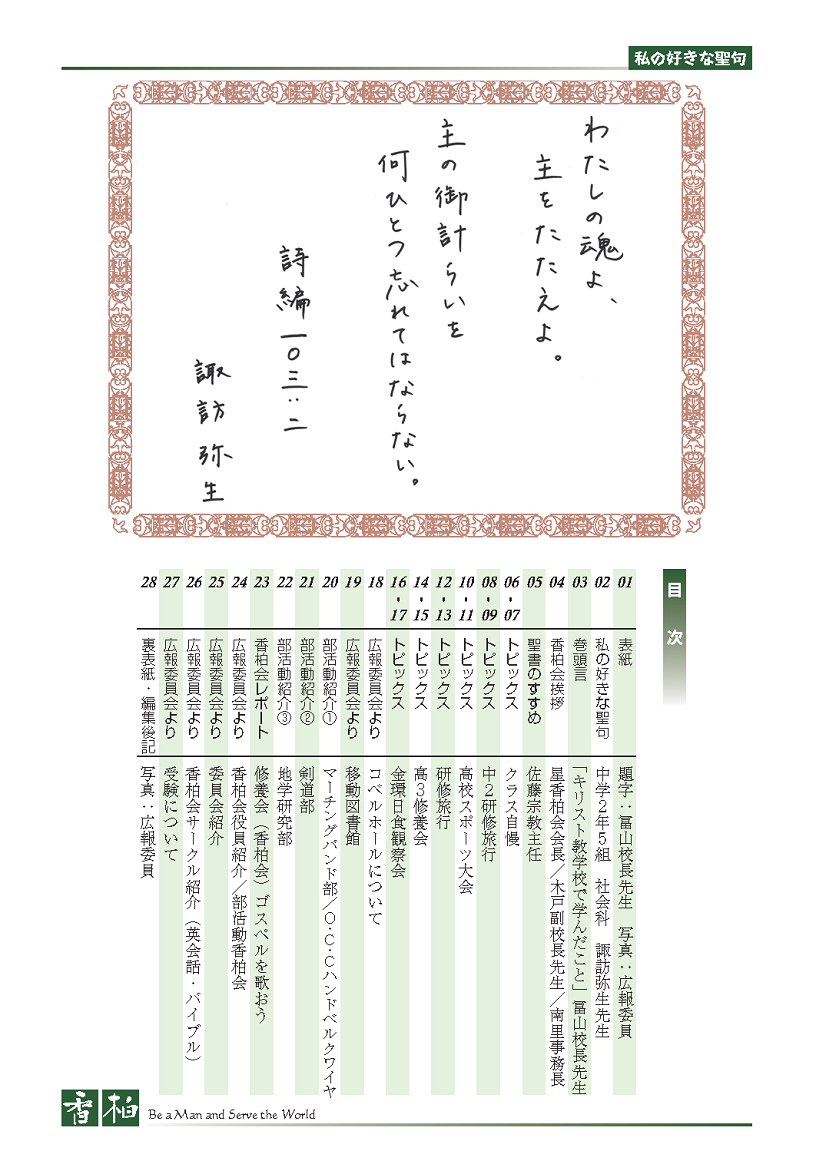 私の好きな聖句
わたしの魂よ、
主をたたえよ。
主の御計らいを
何ひとつ忘れてはならない。
詩編一〇三:二
諏訪弥生
目次
01 表紙 題字:冨山校長先生 写真:広報委員
02 私の好きな聖句 中学2年5組 社会科 諏訪弥生先生
03 巻頭言 「キリスト教学校で学んだこと」冨山校長先生
04 香柏会挨拶 星香柏会会長/木戸副校長先生/南里事務長
05 聖書のすすめ 佐藤宗教主任
06-07 トピックス クラス自慢
08-09 トピックス 中2研修旅行
10-11 トピックス 高校スポーツ大会
12-13 トピックス 研修旅行
14-15 トピックス 高3修養会
16-17 トピックス 金環日食観察会
18 広報委員会より コベルホールについて
19 広報委員会より 移動図書館
20 部活動紹介① マーチングバンド部/O・C・Cハンドベルクワイヤ
21 部活動紹介② 剣道部
22 部活動紹介③ 地学研究部
23 香柏会レポート 修養会(香柏会)ゴスペルを歌おう
24 広報委員会より 香柏会役員紹介/部活動香柏会
25 広報委員会より 委員会紹介
26 広報委員会より 香柏会サークル紹介(英会話・バイブル)
27 広報委員会より 受験について
28 裏表紙・編集後記 写真:広報委員
香柏 Be a Man and Serve the World